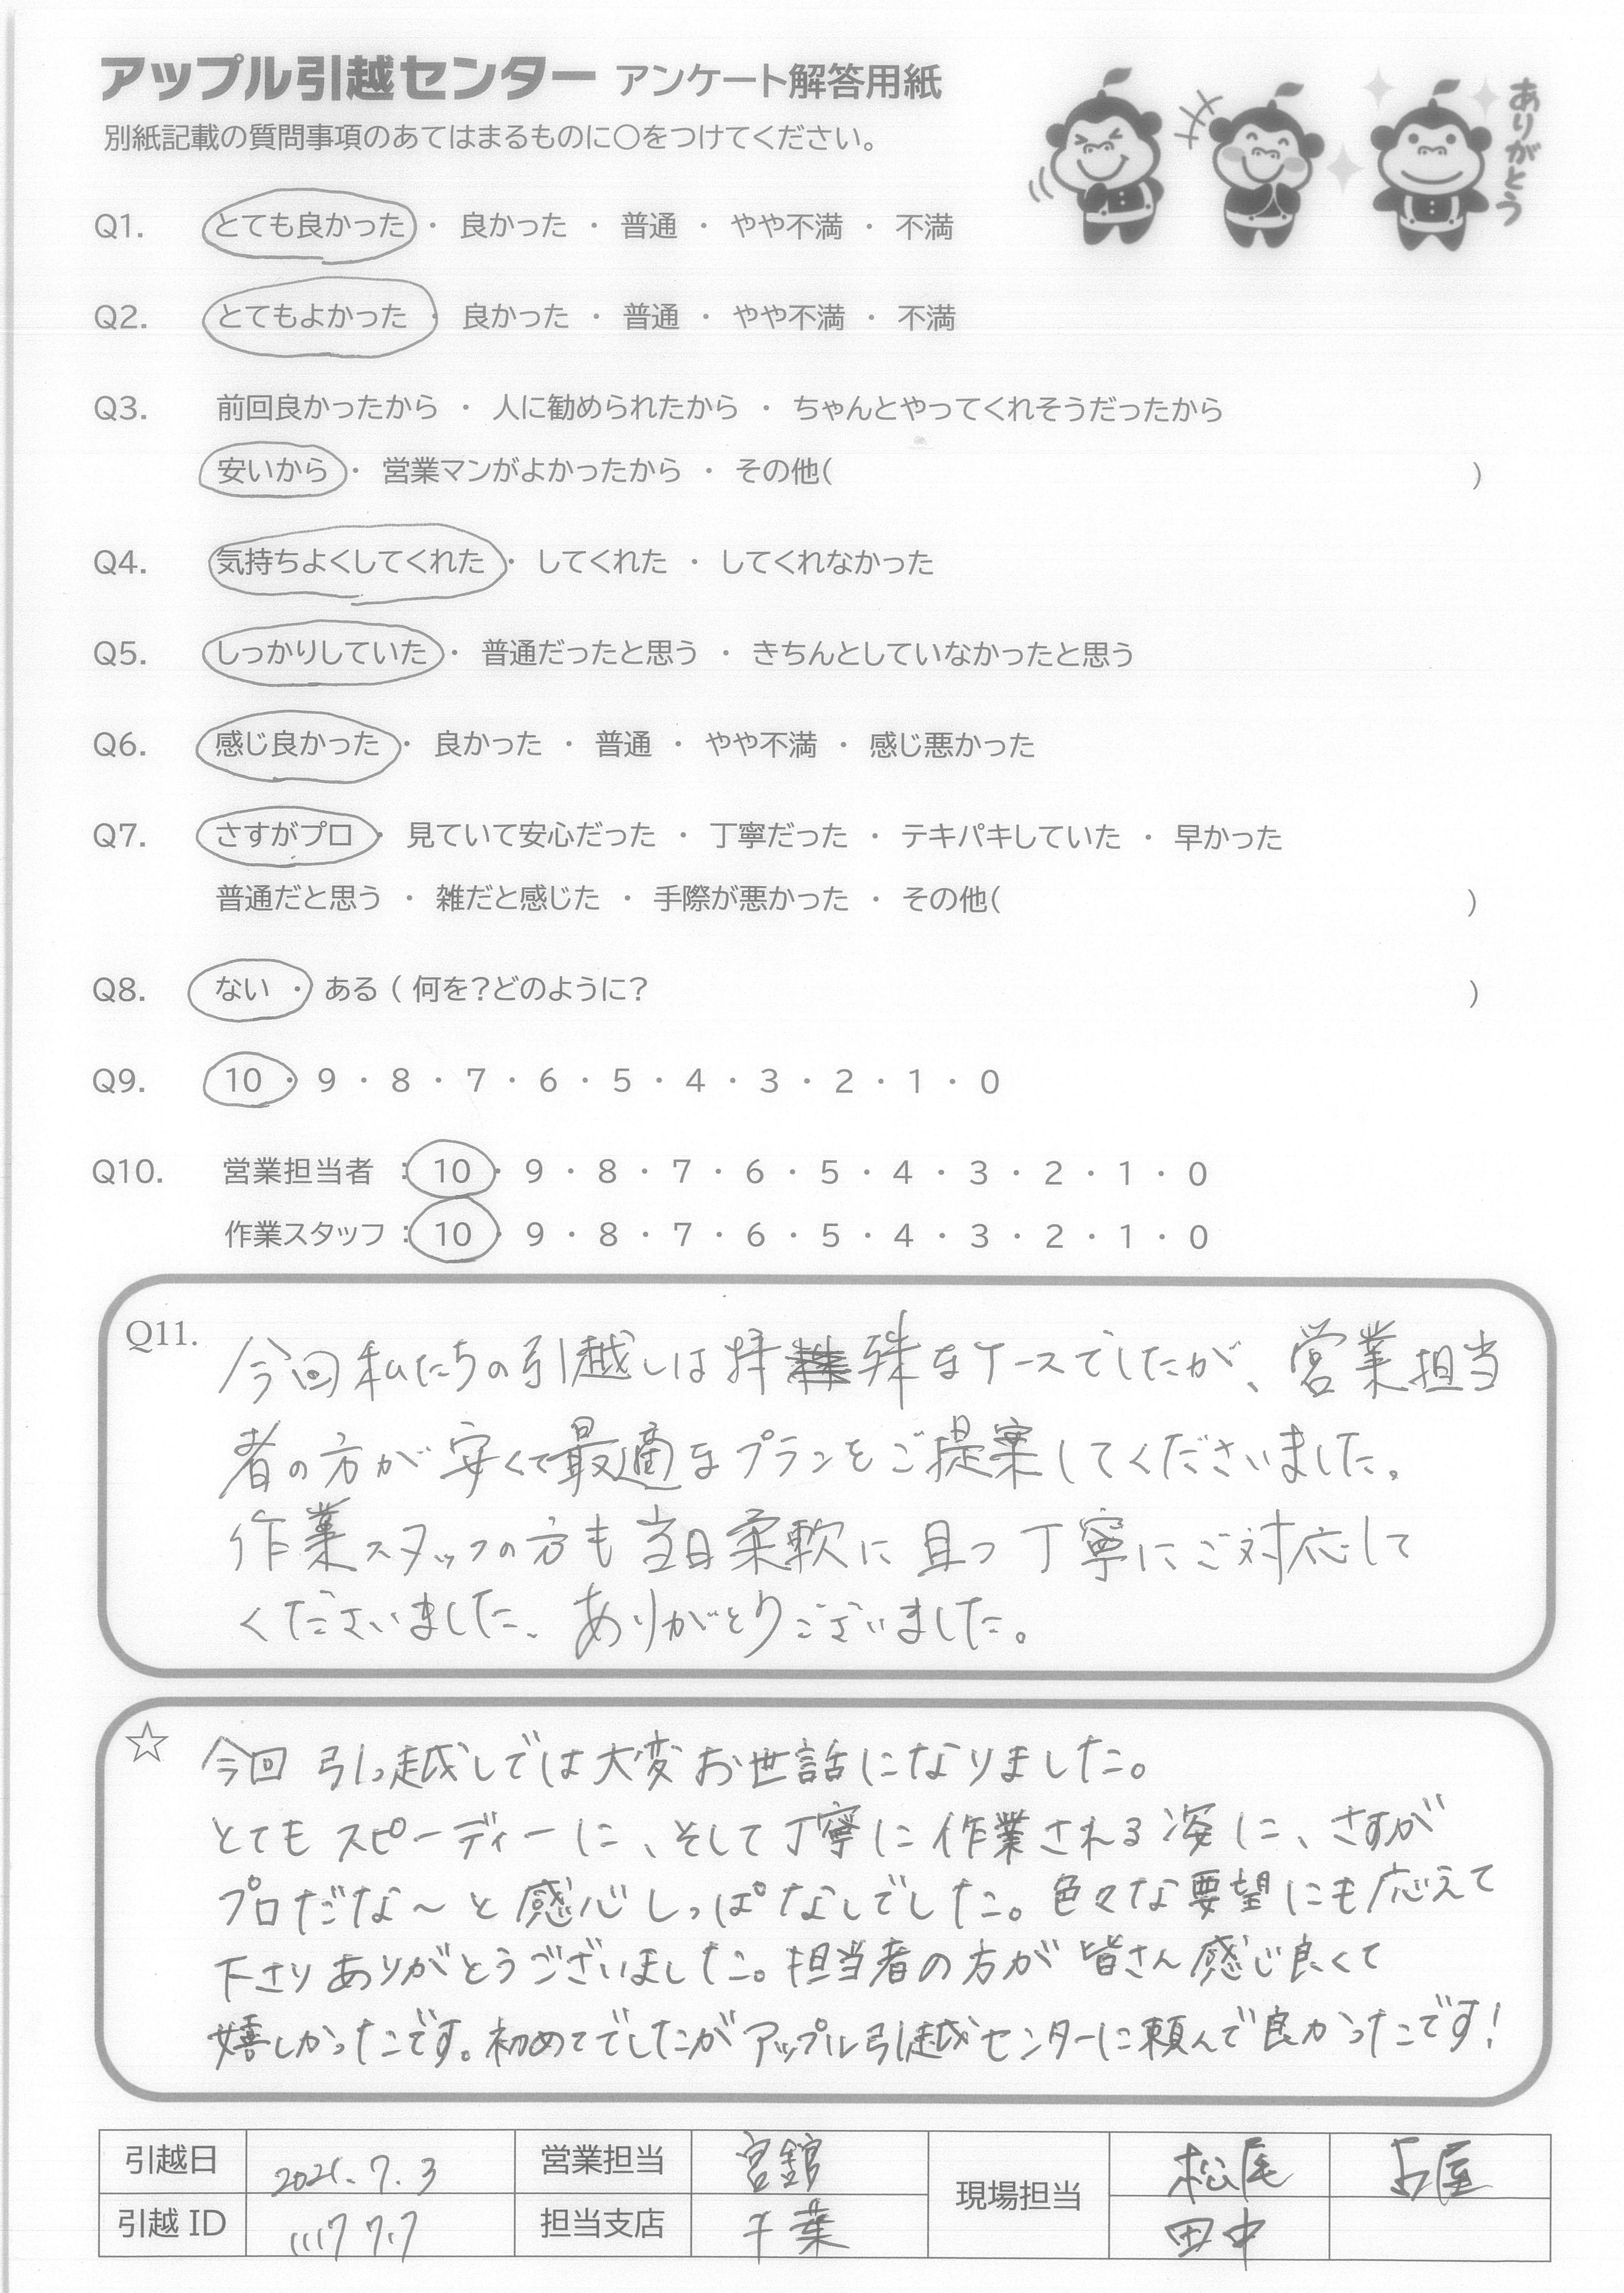 アップル引越センター アンケート解答用紙
別紙記載の質問事項のあてはまるものに○をつけてください。
ありがとう
Q1. とても良かった ・ 良かった ・ 普通 ・ やや不満 ・ 不満
Q2. とてもよかった ・ 良かった ・ 普通 ・ やや不満 ・ 不満
Q3. 前回良かったから ・ 人に勧められたから ・ ちゃんとやってくれそうだったから
安いから ・ 営業マンがよかったから ・ その他( )
Q4. 気持ちよくしてくれた ・ してくれた ・ してくれなかった
Q5. しっかりしていた ・ 普通だったと思う ・ きちんとしていなかったと思う
Q6. 感じ良かった ・ 良かった ・ 普通 ・ やや不満 ・ 感じ悪かった
Q7. さすがプロ ・ 見ていて安心だった ・ 丁寧だった ・ テキパキしていた ・ 早かった
普通だと思う ・ 雑だと感じた ・ 手際が悪かった ・ その他( )
Q8. ない ・ ある ( 何を?どのように? )
Q9. 10 ・ 9 ・ 8 ・ 7 ・ 6 ・ 5 ・ 4 ・ 3 ・ 2 ・ 1 ・ 0
Q10. 営業担当者 : 10 ・ 9 ・ 8 ・ 7 ・ 6 ・ 5 ・ 4 ・ 3 ・ 2 ・ 1 ・ 0
作業スタッフ : 10 ・ 9 ・ 8 ・ 7 ・ 6 ・ 5 ・ 4 ・ 3 ・ 2 ・ 1 ・ 0
Q11. 今回私たちの引越しは特殊なケースでしたが、営業担当
者の方が安くて最適なプランをご提案してくださいました。
作業スタッフの方も当日柔軟に且つ丁寧にご対応して
くださいました。ありがとうございました。
☆ 今回引っ越しでは大変お世話になりました。
とてもスピーディーに、そして丁寧に作業される姿に、さすが
プロだな〜と感心しっぱなしでした。色々な要望にも応えて
下さりありがとうございました。担当者の方が皆さん感じ良くて
嬉しかったです。初めてでしたがアップル引越センターに頼んで良かったです!
引越日 2021.7.3 営業担当 宮舘 現場担当 松尾
引越 ID 担当支店 千葉 田中